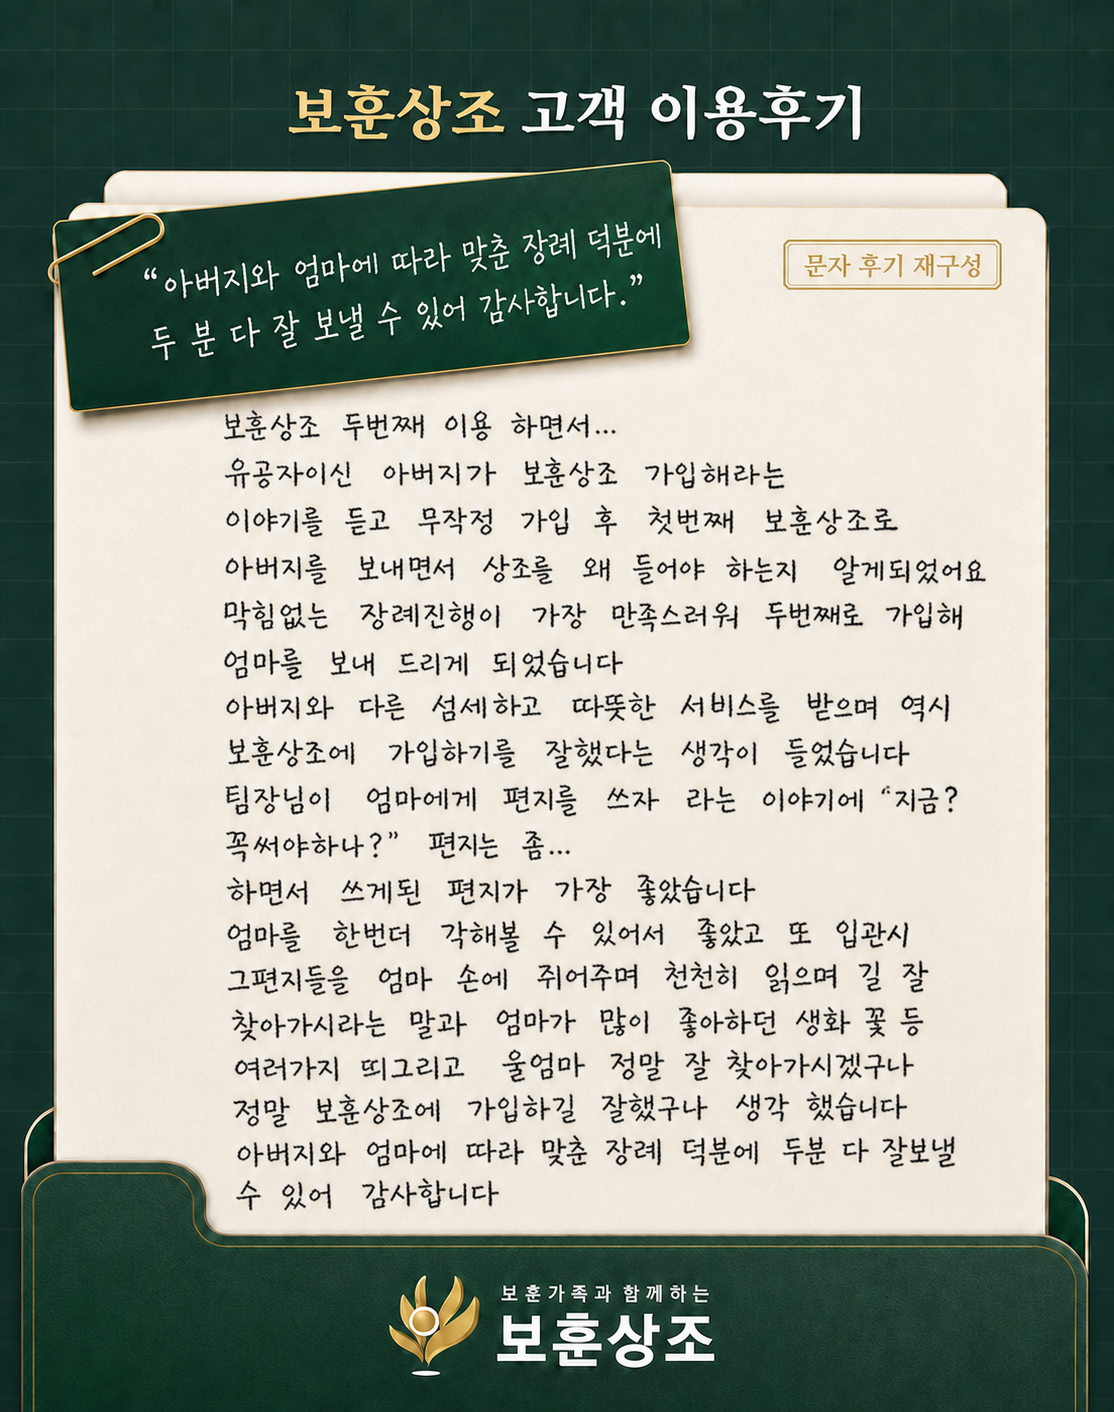 보훈상조 고객 이용후기
“아버지와 엄마에 따라 맞춘 장례 덕분에
두 분 다 잘 보낼 수 있어 감사합니다.”
문자 후기 재구성
보훈상조 두번째 이용 하면서...
유공자이신 아버지가 보훈상조 가입해라는
이야기를 듣고 무작정 가입 후 첫번째 보훈상조로
아버지를 보내면서 상조를 왜 들어야 하는지 알게되었어요
막힘없는 장례진행이 가장 만족스러워 두번째로 가입해
엄마를 보내 드리게 되었습니다
아버지와 다른 섬세하고 따뜻한 서비스를 받으며 역시
보훈상조에 가입하기를 잘했다는 생각이 들었습니다
팀장님이 엄마에게 편지를 쓰자 라는 이야기에 “지금?
꼭써야하나?” 편지는 좀...
하면서 쓰게된 편지가 가장 좋았습니다
엄마를 한번더 각해볼 수 있어서 좋았고 또 입관시
그편지들을 엄마 손에 쥐어주며 천천히 읽으며 길 잘
찾아가시라는 말과 엄마가 많이 좋아하던 생화 꽃 등
여러가지 띄그리고 울엄마 정말 잘 찾아가시겠구나
정말 보훈상조에 가입하길 잘했구나 생각 했습니다
아버지와 엄마에 따라 맞춘 장례 덕분에 두분 다 잘보낼
수 있어 감사합니다
보훈가족과 함께하는
보훈상조